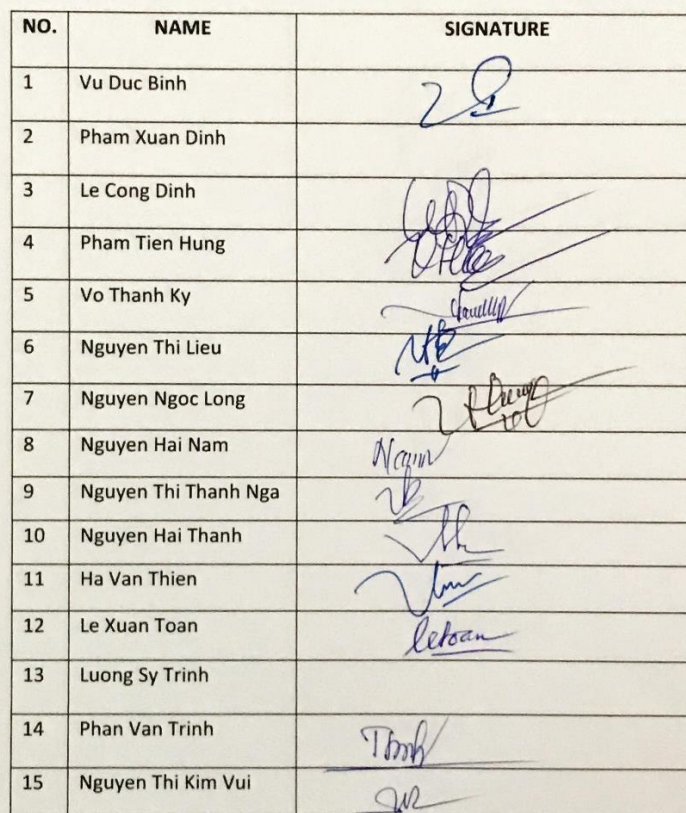 NO. NAME SIGNATURE
1 Vu Duc Binh
2 Pham Xuan Dinh
3 Le Cong Dinh
4 Pham Tien Hung
5 Vo Thanh Ky
6 Nguyen Thi Lieu
7 Nguyen Ngoc Long
8 Nguyen Hai Nam
9 Nguyen Thi Thanh Nga
10 Nguyen Hai Thanh
11 Ha Van Thien
12 Le Xuan Toan letoan
13 Luong Sy Trinh
14 Phan Van Trinh
15 Nguyen Thi Kim Vui